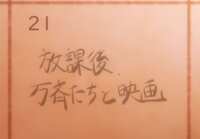 21
放課後、
万斉たちと映画